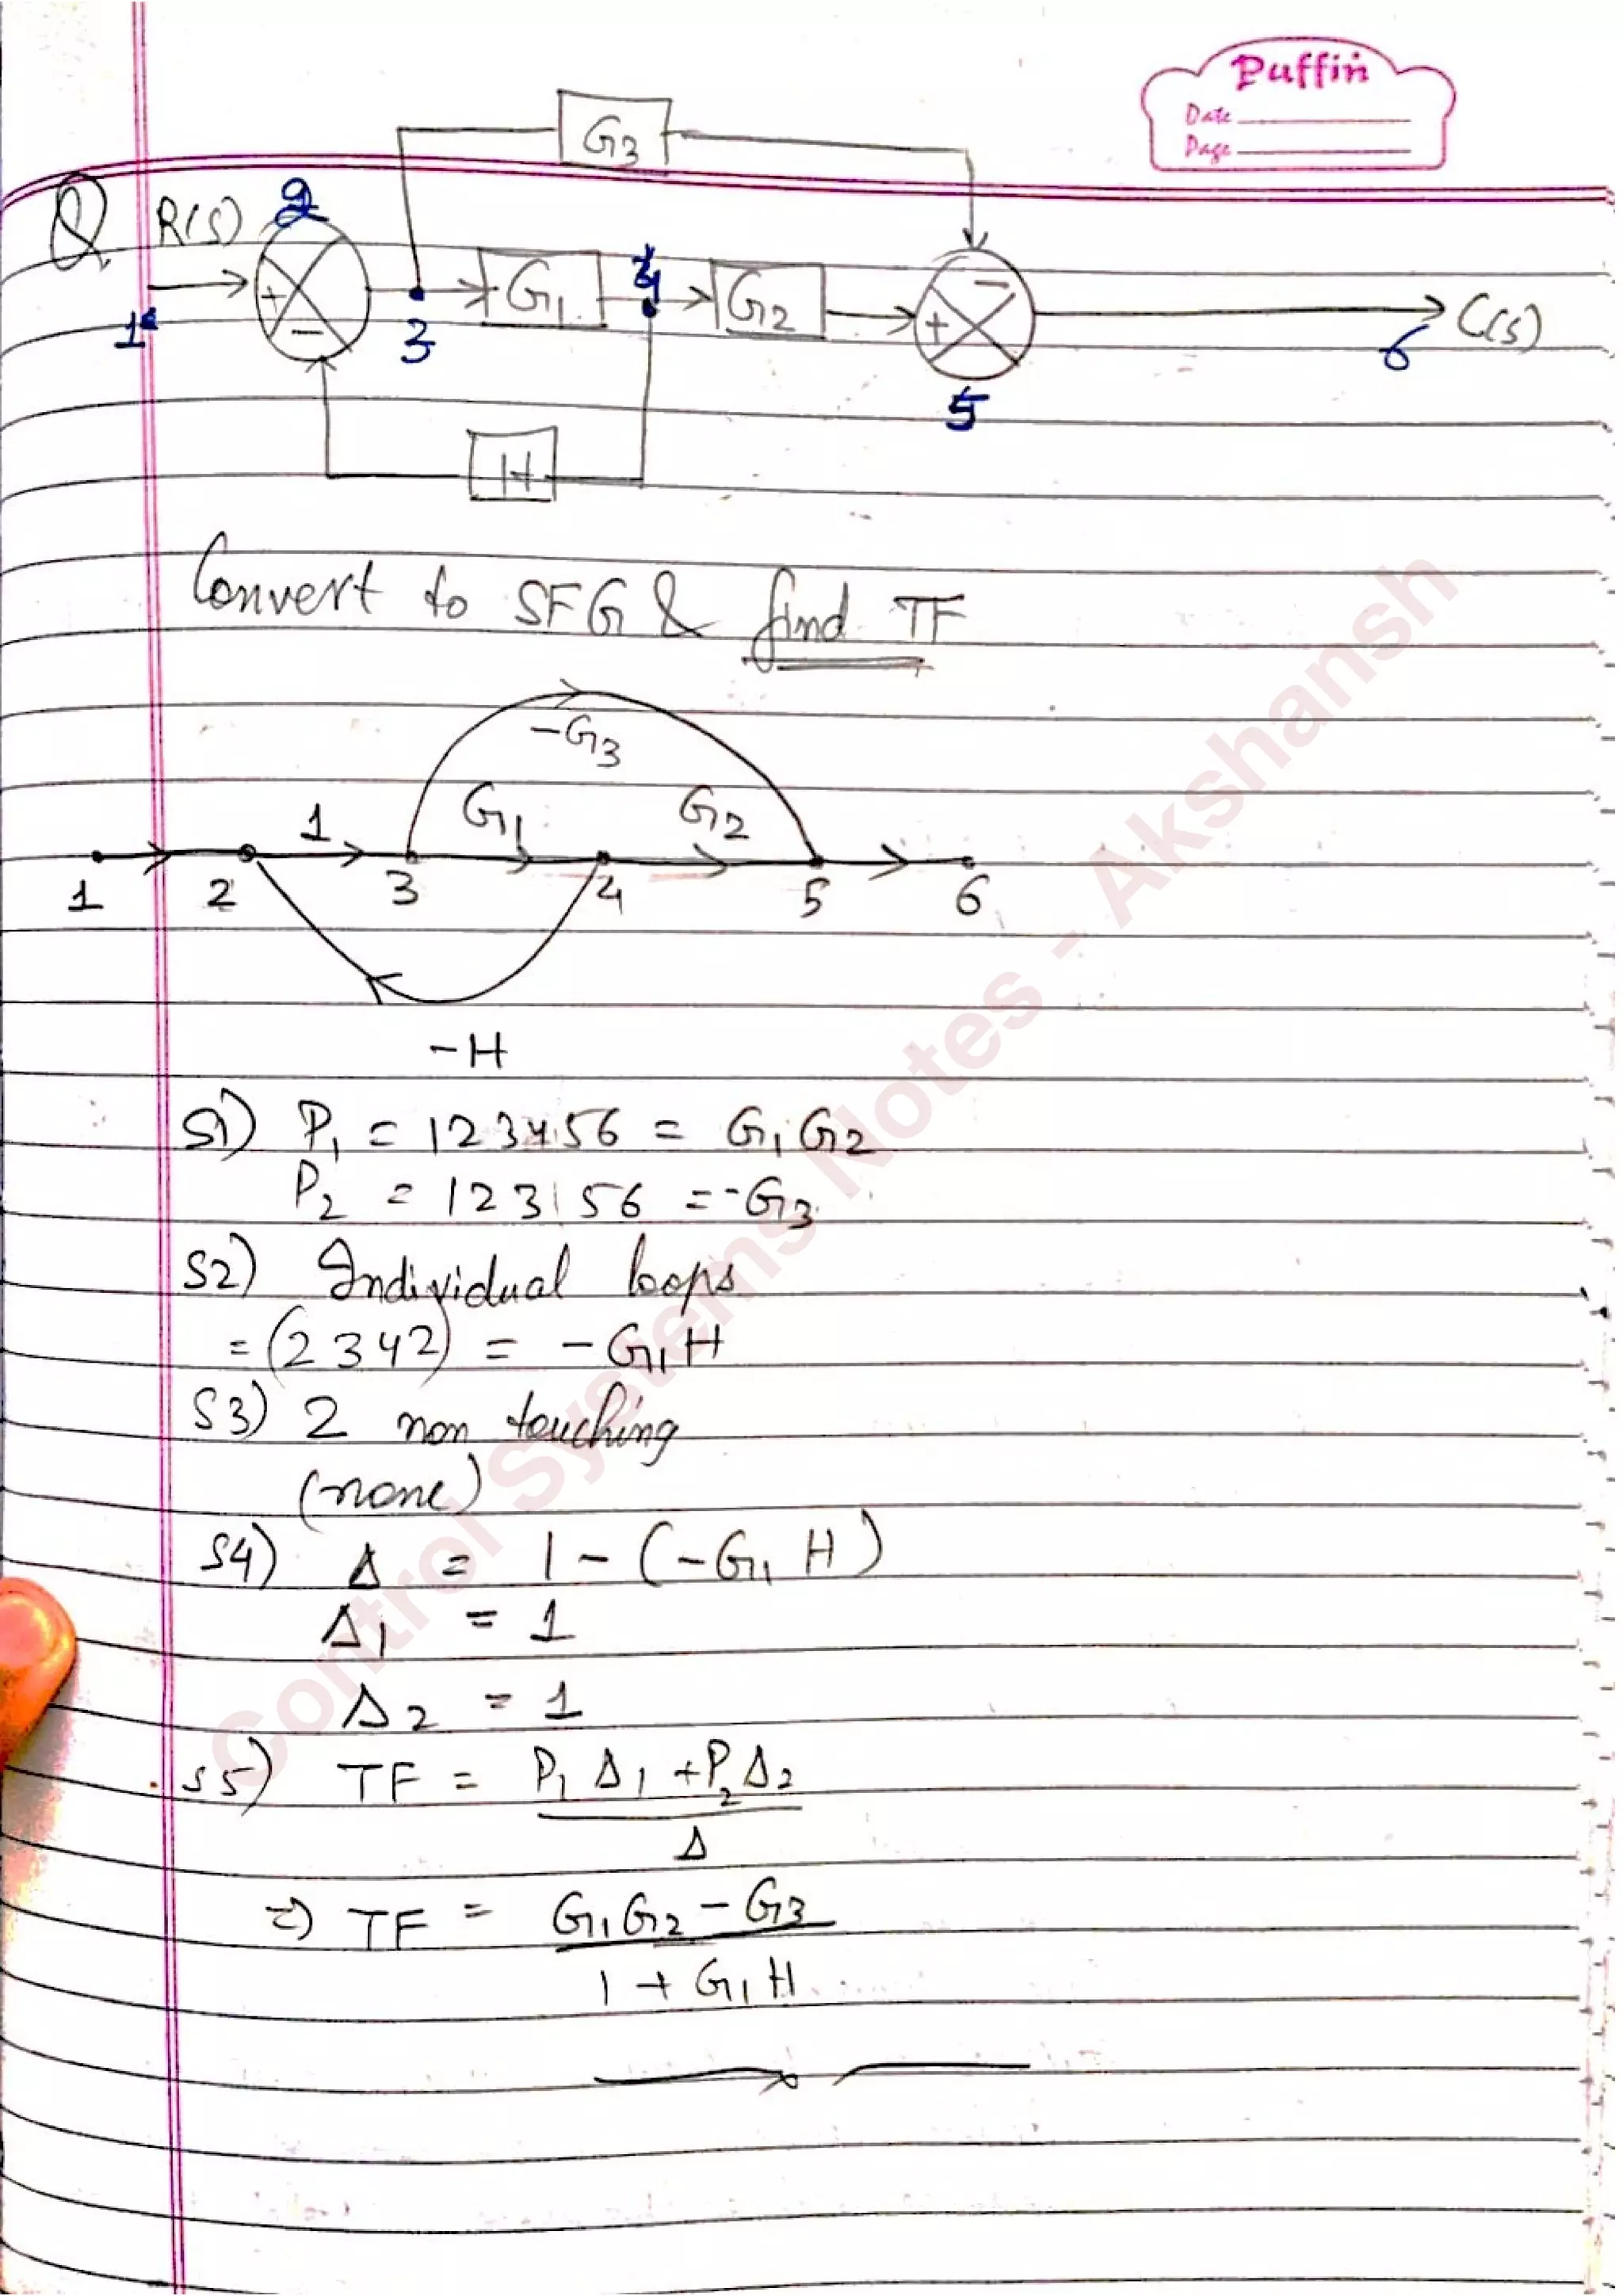 Puffin
Date
Page
G3
Q. R(s) 2
+ - G1 4 G2 + - C(s)
1 3 6
5
H
Convert to SFG & find TF
-G3
1 G1 G2
1 2 3 4 5 6
-H
S1) P1 = 123456 = G1G2
P2 = 123156 = -G3
S2) Individual loops
= (2342) = -G1H
S3) 2 non touching
(none)
S4) Δ = 1 - (-G1 H)
Δ1 = 1
Δ2 = 1
S5) TF = P1 Δ1 + P2 Δ2
Δ
=> TF = G1G2 - G3
1 + G1H
Control Systems Notes - Akshansh